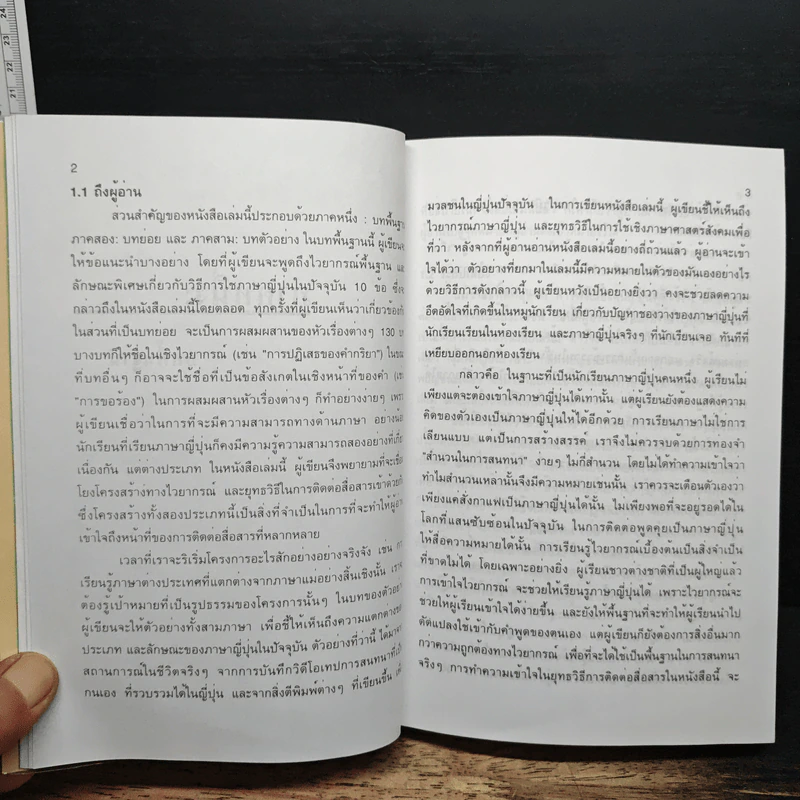 24
23
22
21
2
1.1 ถึงผู้อ่าน
ส่วนสำคัญของหนังสือเล่มนี้ประกอบด้วยภาคหนึ่ง : บทพื้นฐาน
ภาคสอง: บทย่อย และ ภาคสาม: บทตัวอย่าง ในบทพื้นฐานนี้ ผู้เขียน
ให้ข้อแนะนำบางอย่าง โดยที่ผู้เขียนจะพูดถึงไวยากรณ์พื้นฐาน
ลักษณะพิเศษเกี่ยวกับวิธีการใช้ภาษาญี่ปุ่นในปัจจุบัน 10 ข้อ
กล่าวถึงในหนังสือเล่มนี้โดยตลอด ทุกครั้งที่ผู้เขียนเห็นว่าเกี่ยวข้อง
ในส่วนที่เป็นบทย่อย จะเป็นการผสมผสานของหัวเรื่องต่างๆ 130
บางบทก็ให้ชื่อในเชิงไวยากรณ์ (เช่น "การปฏิเสธของคำกริยา")
ที่บทอื่นๆ ก็อาจจะใช้ชื่อที่เป็นข้อสังเกตในเชิงหน้าที่ของคำ
"การขอร้อง") ในการผสมผสานหัวเรื่องต่างๆ ก็ทำอย่างง่ายๆ
ผู้เขียนเชื่อว่าในการที่จะมีความสามารถทางด้านภาษา
นักเรียนที่เรียนภาษาญี่ปุ่นก็คงมีความรู้ความสามารถสองอย่างที่
เนื่องกัน แต่ต่างประเภท ในหนังสือเล่มนี้ ผู้เขียนจึงพยายามที่จะ
โยงโครงสร้างทางไวยากรณ์ และยุทธวิธีในการติดต่อสื่อสารเข้าด้วย
ซึ่งโครงสร้างทั้งสองประเภทนี้เป็นสิ่งที่จำเป็นในการที่จะทำให้
เข้าใจถึงหน้าที่ของการติดต่อสื่อสารที่หลากหลาย
เวลาที่เราจะริเริ่มโครงการอะไรสักอย่างอย่างจริงจัง เช่น
เรียนรู้ภาษาต่างประเทศที่แตกต่างจากภาษาแม่อย่างสิ้นเชิงนั้น
ต้องรู้เป้าหมายที่เป็นรูปธรรมของโครงการนั้นๆ ในบทของตัวอย่าง
ผู้เขียนจะให้ตัวอย่างทั้งสามภาษา เพื่อชี้ให้เห็นถึงความแตกต่างของ
ประเภท และลักษณะของภาษาญี่ปุ่นในปัจจุบัน ตัวอย่างที่ว่านี้
สถานการณ์ในชีวิตจริงๆ จากการบันทึกวิดีโอเทปการสนทนา
กันเอง ที่รวบรวมได้ในญี่ปุ่น และจากสิ่งตีพิมพ์ต่างๆ ที่เขียนขึ้น
3
มวลชนในญี่ปุ่นปัจจุบัน ในการเขียนหนังสือเล่มนี้ ผู้เขียนชี้ให้เห็นถึง
ไวยากรณ์ภาษาญี่ปุ่น และยุทธวิธีในการใช้เชิงภาษาศาสตร์สังคมเพื่อ
ที่ว่า หลังจากที่ผู้อ่านอ่านหนังสือเล่มนี้อย่างถี่ถ้วนแล้ว ผู้อ่านจะเข้า
ใจได้ว่า ตัวอย่างที่ยกมาในเล่มนี้มีความหมายในตัวของมันเองอย่างไร
ด้วยวิธีการดังกล่าวนี้ ผู้เขียนหวังเป็นอย่างยิ่งว่า คงจะช่วยลดความ
อึดอัดใจที่เกิดขึ้นในหมู่นักเรียน เกี่ยวกับปัญหาช่องว่างของภาษาญี่ปุ่นที่
นักเรียนเรียนในห้องเรียน และภาษาญี่ปุ่นจริงๆ ที่นักเรียนเจอ ทันทีที่
เหยียบออกนอกห้องเรียน
กล่าวคือ ในฐานะที่เป็นนักเรียนภาษาญี่ปุ่นคนหนึ่ง ผู้เรียนไม่
เพียงแต่จะต้องเข้าใจภาษาญี่ปุ่นได้เท่านั้น แต่ผู้เรียนยังต้องแสดงความ
คิดของตัวเองเป็นภาษาญี่ปุ่นให้ได้อีกด้วย การเรียนภาษาไม่ใช่การ
เลียนแบบ แต่เป็นการสร้างสรรค์ เราจึงไม่ควรจบด้วยการท่องจำ
"สำนวนในการสนทนา" ง่ายๆ ไม่กี่สำนวน โดยไม่ได้ทำความเข้าใจว่า
ทำไมสำนวนเหล่านั้นจึงมีความหมายเช่นนั้น เราควรจะเตือนตัวเองว่า
เพียงแค่สั่งกาแฟเป็นภาษาญี่ปุ่นได้นั้น ไม่เพียงพอที่จะอยู่รอดได้ใน
โลกที่แสนซับซ้อนในปัจจุบัน ในการติดต่อพูดคุยเป็นภาษาญี่ปุ่น
ให้สื่อความหมายได้นั้น การเรียนรู้ไวยากรณ์เบื้องต้นเป็นสิ่งจำเป็น
ที่ขาดไม่ได้ โดยเฉพาะอย่างยิ่ง ผู้เรียนชาวต่างชาติที่เป็นผู้ใหญ่แล้ว
การเข้าใจไวยากรณ์ จะช่วยให้เรียนรู้ภาษาญี่ปุ่นได้ เพราะไวยากรณ์จะ
ช่วยให้ผู้เรียนเข้าใจได้ง่ายขึ้น และยังให้พื้นฐานที่จะทำให้ผู้เรียนนำไป
ดัดแปลงใช้เข้ากับคำพูดของตนเอง แต่ผู้เขียนก็ยังต้องการสิ่งอื่นมาก
กว่าความถูกต้องทางไวยากรณ์ เพื่อที่จะได้ใช้เป็นพื้นฐานในการสนทนา
จริงๆ การทำความเข้าใจในยุทธวิธีการติดต่อสื่อสารในหนังสือนี้ จะ